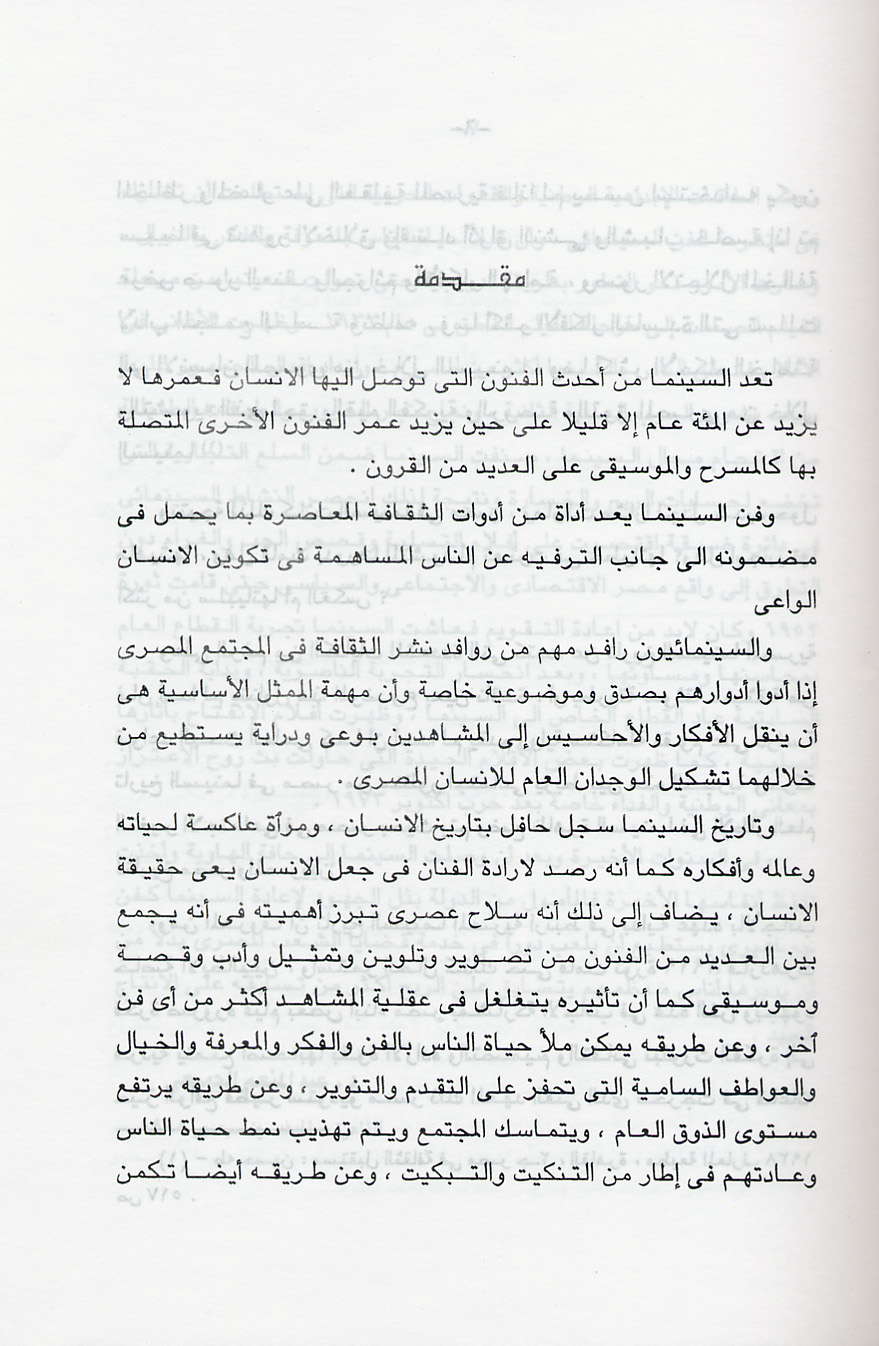 مقدمة
تعد السينما من أحدث الفنون التى توصل اليها الانسان فعمرها لا
يزيد عن المئة عام إلا قليلا على حين يزيد عمر الفنون الأخرى المتصلة
بها كالمسرح والموسيقى على العديد من القرون .
وفن السينما يعد أداة من أدوات الثقافة المعاصرة بما يحمل فى
مضمونه الى جانب الترفيه عن الناس المساهمة فى تكوين الانسان
الواعى
والسينمائيون رافد مهم من روافد نشر الثقافة فى المجتمع المصرى
إذا أدوا أدوارهم بصدق وموضوعية خاصة وأن مهمة الممثل الأساسية هى
أن ينقل الأفكار والأحاسيس إلى المشاهدين بوعى ودراية يستطيع من
خلالهما تشكيل الوجدان العام للانسان المصرى .
وتاريخ السينما سجل حافل بتاريخ الانسان ، ومرآة عاكسة لحياته
وعالمه وأفكاره كما أنه رصد لارادة الفنان فى جعل الانسان يعى حقيقة
الانسان ، يضاف إلى ذلك أنه سلاح عصرى تبرز أهميته فى أنه يجمع
بين العديد من الفنون من تصوير وتلوين وتمثيل وأدب وقصة
وموسيقى كما أن تأثيره يتغلغل فى عقلية المشاهد أكثر من أى فن
آخر ، وعن طريقه يمكن ملأ حياة الناس بالفن والفكر والمعرفة والخيال
والعواطف السامية التى تحفز على التقدم والتنوير ، وعن طريقه يرتفع
مستوى الذوق العام ، ويتماسك المجتمع ويتم تهذيب نمط حياة الناس
وعادتهم فى إطار من التنكيت والتبكيت ، وعن طريقه أيضا تكمن